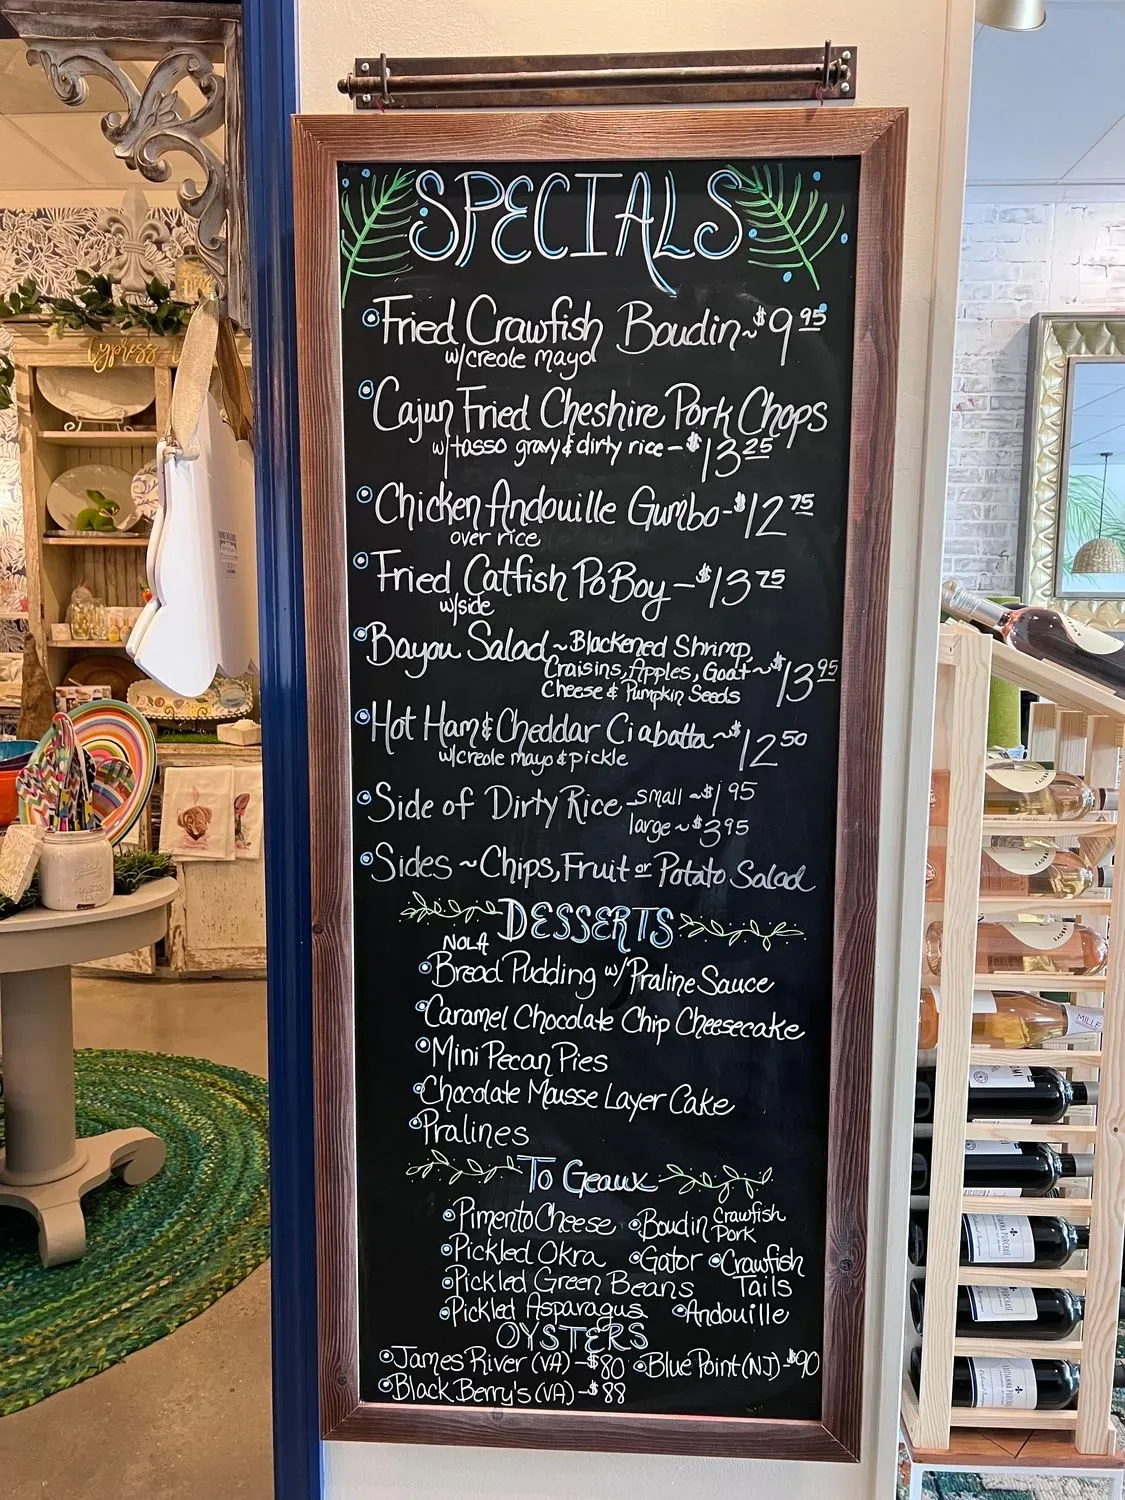 SPECIALS
Fried Crawfish Boudin~$9 95
w/creole mayo
Cajun Fried Cheshire Pork Chops
w/tasso gravy & dirty rice - $13 25
Chicken Andouille Gumbo-$12 75
over rice
Fried Catfish PoBoy - $13 75
w/side
Bayou Salad ~ Blackened Shrimp,
Craisins, Apples, Goat ~ $13 95
Cheese & Pumpkin Seeds
Hot Ham & Cheddar Ciabatta ~ $12 50
w/creole mayo & pickle
Side of Dirty Rice - small ~ $1 95
large ~ $3 95
Sides ~ Chips, Fruit or Potato Salad
DESSERTS
NOLA
Bread Pudding w/Praline Sauce
Caramel Chocolate Chip Cheesecake
Mini Pecan Pies
Chocolate Mousse Layer Cake
Pralines
To Geaux
Pimento Cheese Boudin Crawfish
Pork
Pickled Okra Gator Crawfish
Pickled Green Beans Tails
Pickled Asparagus Andouille
OYSTERS
James River (VA) - $80 Blue Point (NJ) - $90
Black Berry's (VA) - $88
Cypress